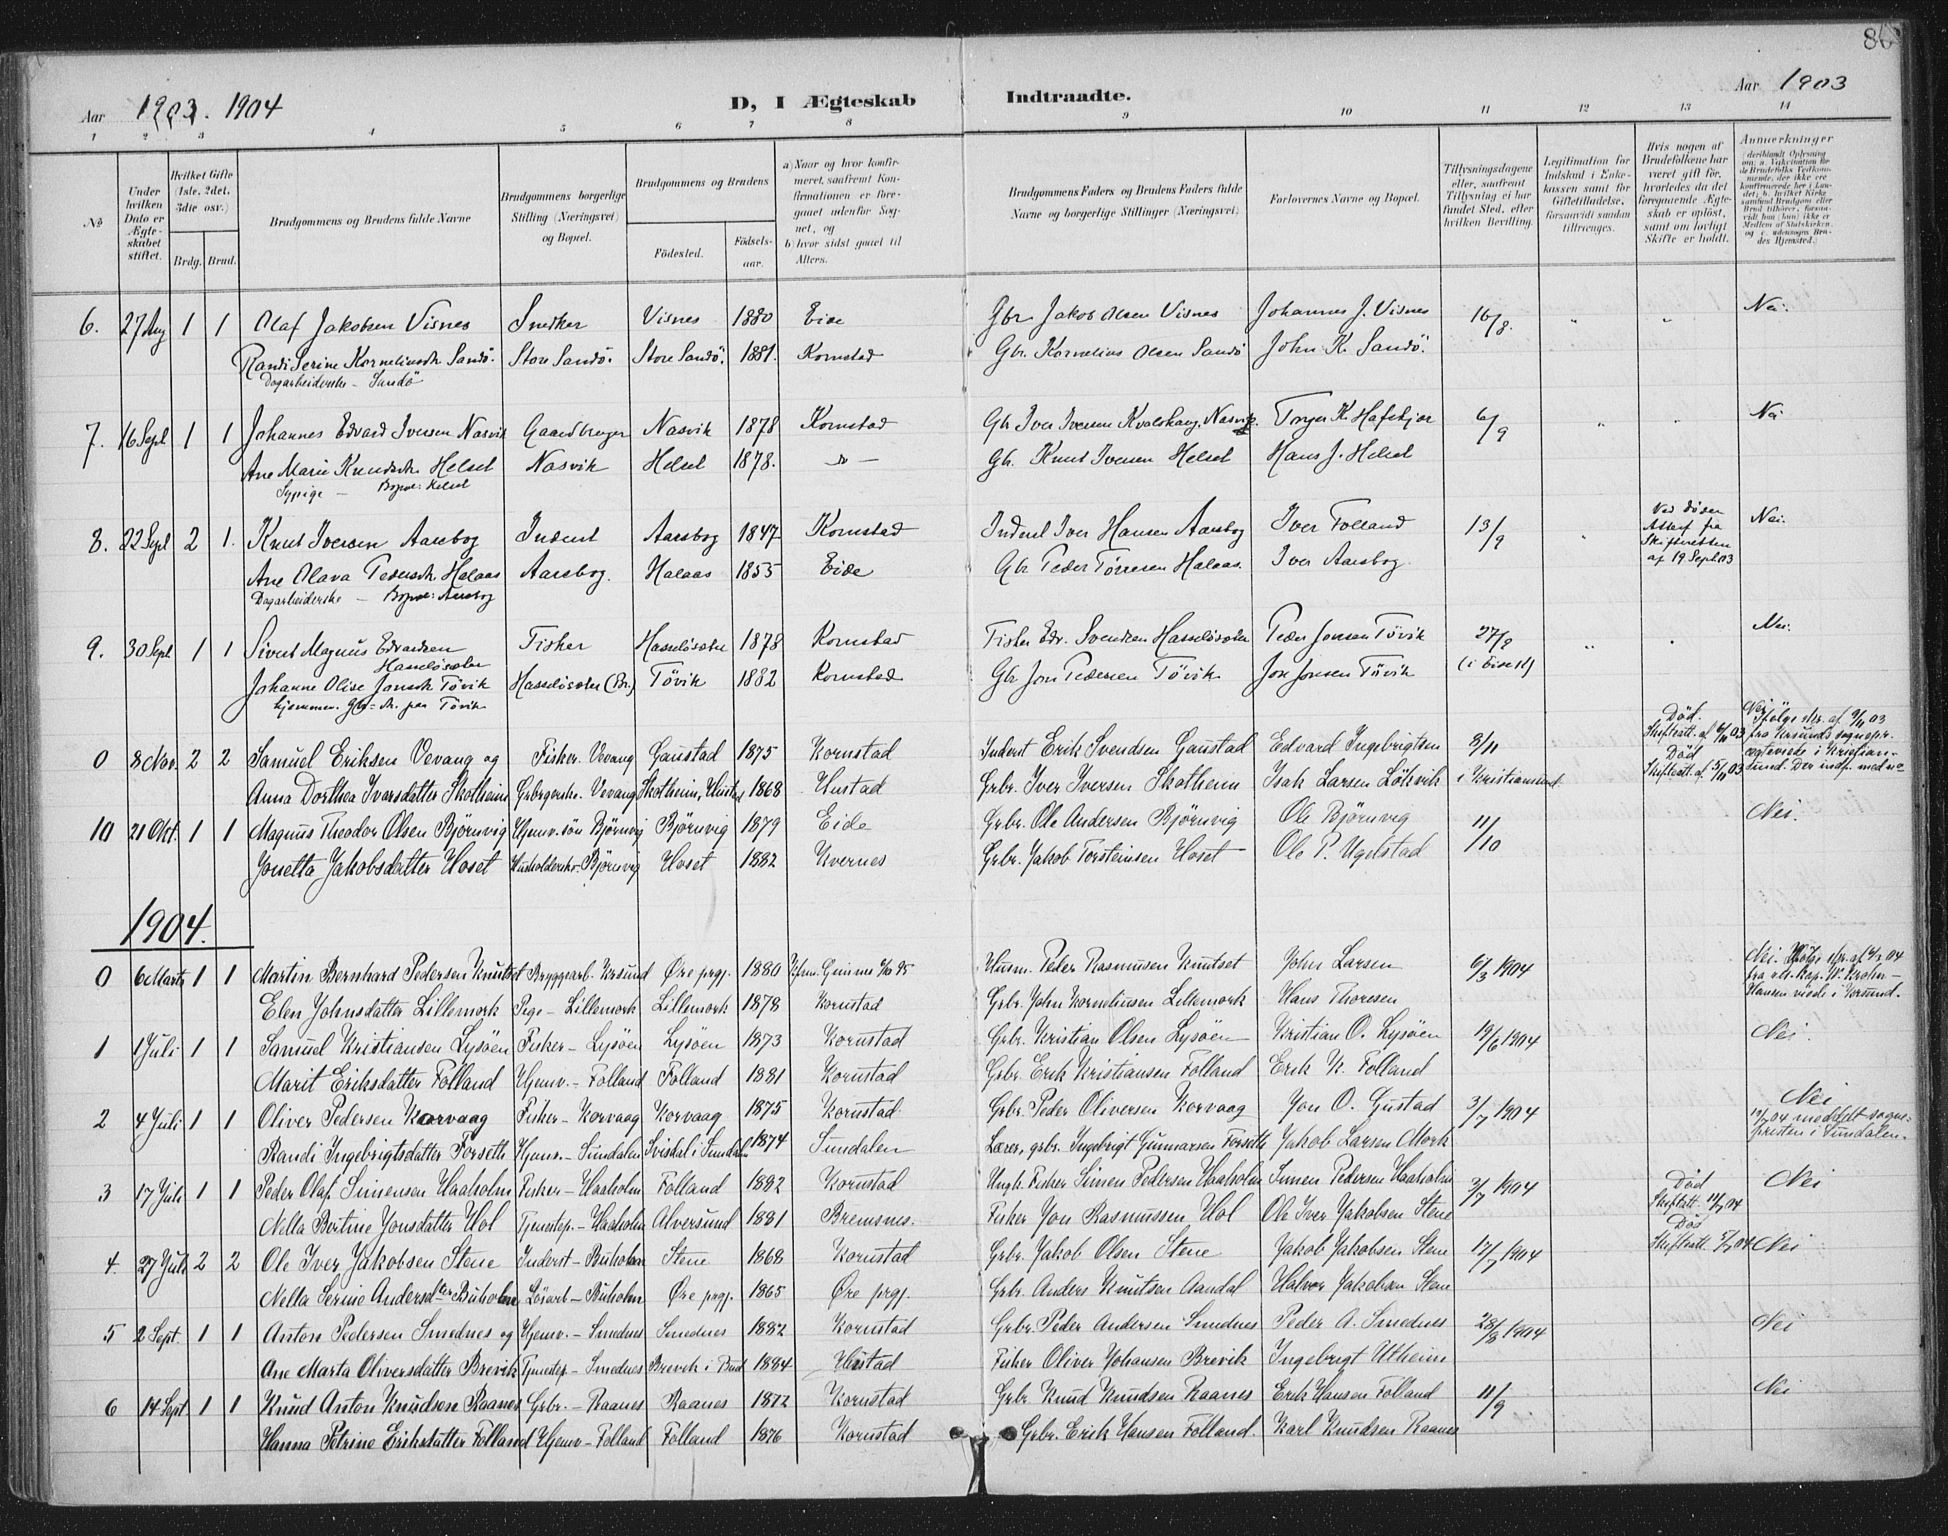 86
Aar 1903. 1904 D, I Ægteskab Indtraadte. Aar 1903
1 2 3 4 5 6 7 8 9 10 11 12 13 14
№
Under hvilken Dato er Ægteskabet stiftet.
Hvilket Gifte (1ste, 2det, 3die osv.)
Brdg. Brud.
Brudgommens og Brudens fulde Navne
Brudgommens borgerlige Stilling (Næringsvei) og Bopæl.
Brudgommens og Brudens
Fødested. Fødselsaar.
a) Naar og hvor konfirmeret, saafremt Konfirmationen er foregaaet udenfor Sognet, og
b) hvor sidst gaaet til Alters.
Brudgommens Faders og Brudens Faders fulde Navne og borgerlige Stillinger (Næringsvei)
Forlovernes Navne og Bopæl.
Tillysningsdagene eller, saafremt Tillysning ei har fundet Sted, efter hvilken Bevilling.
Legitimation for Indskud i Enkekassen samt for Giftetilladelse, forsaavidt saadan tiltrænges.
Hvis nogen af Brudefolkene har været gift før, hvorledes da det foregaaende Ægteskab er opløst, samt om lovligt Skifte er holdt.
Anmerkninger
6. 27 Aug 1 1 Olaf Jakobsen Visnes Snedker Visnes 1880 Eide Gbr Jakob Olsen Visnes Johannes J. Visnes 16/8. Nei.
Randi Serine Kornelinsdt Sandö. Store Sandö. Store Sandö. 1881. Kornstad Gbr. Kornelius Olsen Sandö John K. Sandö.
Dagarbeiderske - Sandö
7. 16 Sept 1 1 Johannes Edvard Iversen Nasvik Gaardbruger Nasvik 1878 Kornstad Gb. Iver Iversen Kvalshaug, Nasvik Torger K. Hafskjær 6/9 Nei
Ane Marie Knudsdt Helset Nasvik Helset 1878. do — Gb. Knut Iversen Helset Hans J. Helset
Sypige — Bopæl: Helset
8. 22 Sept 2 1. Knut Iversen Aarsbog Inderst Aarsbog 1847 Kornstad Inderst Iver Hansen Aarsbog Iver Folland 13/9 Ved døden Attest fra Skifteretten af 19 Sept. 03 Nei.
Ane Olava Pedersdt Halaas Aarsbog. Halaas 1855 Eide Gbr Peder Törresen Halaas. Iver Aarsbog.
Dagarbeiderske — Bopæl: Aarsbog
9. 30 Sept 1 1 Sivert Magnus Edvardsen Fisker Hasselösæter 1878 Kornstad Fisker Edv. Svendsen Hasselösæter Peder Jonsen Tövik 27/9 Nei.
Hasselösæter
Johanne Olise Jonsdt Tövik Hasselösæter (Br.) Tövik 1882 Kornstad Gb Jon Pedersen Tövik Jon Jonsen Tövik
hjemmev. Gbr-dt. paa Tövik
0 8 Nov. 2 2 Samuel Eriksen Vevang og Fisker. Vevang Gaustad 1875 Kornstad Inderst Erik Svendsen Gaustad Edvard Ingebrigtsen 8/11 Død. Skifteatt. af 6/11 03 Nei. Ifølge skr. af 9/11 03 fra Krsunds sognepr. ægteviede i Kristiansund.
Anna Dorthea Ivarsdatter Skotheim Grbrgerske. Vevang Skotheim, Hustad 1868 Hustad Grbr. Iver Iversen Skotheim Isak Larsen Løkvik i Kristiansund Død Skifteatt. af 5/11 03
10 21 Okt. 1 1 Magnus Theodor Olsen Bjørnvig Hjemv. søn Bjørnvig Bjørnvig 1879 Eide Grbr. Ole Andersen Bjørnvig Ole Bjørnvig 11/10 Nei.
Jonetta Jakobsdatter Hoset Husholderske. Bjørnvig Hoset 1882 Kvernes Grbr. Jakob Torsteinsen Hoset Ole P. Ugelstad
1904.
0 6 Marts 1 1 Martin Bernhard Pedersen Knutset Bryggearb. Krsund Øre prgj. 1880 Husm. Peder Rasmussen Knutset John Larsen 6/3 1904 Nei.
Elen Johnsdatter Lillemork Pige - Lillemork Lillemork 1878 Kornstad Grbr. John Korneliusen Lillemork Hans Thoresen
1 1 Juli 1 1 Samuel Kristiansen Lysøen Fisker - Lysøen Lysøen 1873 Kornstad Grbr. Kristian Olsen Lysøen Kristian O. Lysøen 19/6 1904 Nei.
Marit Eriksdatter Folland Hjemv. - Folland Folland 1881 Kornstad Grbr. Erik Kristiansen Folland Erik K. Folland
2 4 Juli 1 1 Oliver Pedersen Korvaag Fisker - Korvaag Korvaag 1875 Kornstad Grbr. Peder Oliversen Korvaag Jon O. Gustad 3/7 1904 Nei
Randi Ingebrigtsdatter Forseth Hjemv. - Sundalen Svisdal i Sundalen 1874 Sundalen Lærer, grbr. Ingebrigt Gunnarsen Forseth Jakob Larsen Mork 19/7 04 meddelt sognepresten i Sundalen.
3 17 Juli 1 1 Peder Olaf Simensen Haaholm Fisker - Haaholm Folland 1882 Kornstad Ungk. Fisker Simen Pedersen Haaholm Simen Pedersen Haaholm 3/7 1904 Nei
Nella Bertine Jonsdatter Hol Tjenstep. - Haaholm Alversund 1881 Bremsnes. Fisker Jon Rasmussen Hol Ole Iver Jakobsen Stene
4. 27 Juli 2 2 Ole Iver Jakobsen Stene Inderst - Buholm Stene 1868 Kornstad Grbr. Jakob Olsen Stene Jakob Jakobsen Stene 17/7 1904 Død Skifteatt. 14/7 04 Nei
Nella Serine Andersdter Buholm Løsarb - Buholm Øre prgj. 1865 Øre prgj. Grbr. Anders Knutsen Aandal Halvor Jakobsen Stene Død Skifteatt. 5/7 04
5 2 Sept. 1 1 Anton Pedersen Smednes og Hjemv. - Smednes Smednes 1882 Kornstad Grbr. Peder Andersen Smednes Peder A. Smednes 28/8 1904 Nei
Ane Marta Oliversdatter Brevik Tjenestep - Smednes Brevik i Bud 1884 Hustad Fisker Oliver Johansen Brevik Ingebrigt Utheim
6 14 Sept 1 1 Knud Anton Knudsen Raanes Grbr. - Raanes Raanes 1872 Kornstad Grbr Knud Knudsen Raanes Erik Hansen Folland 11/9 Nei
Hanna Petrine Eriksdatter Folland Hjemv - Folland Folland 1876 Kornstad Grbr. Erik Hansen Folland. Karl Knudsen Raanes